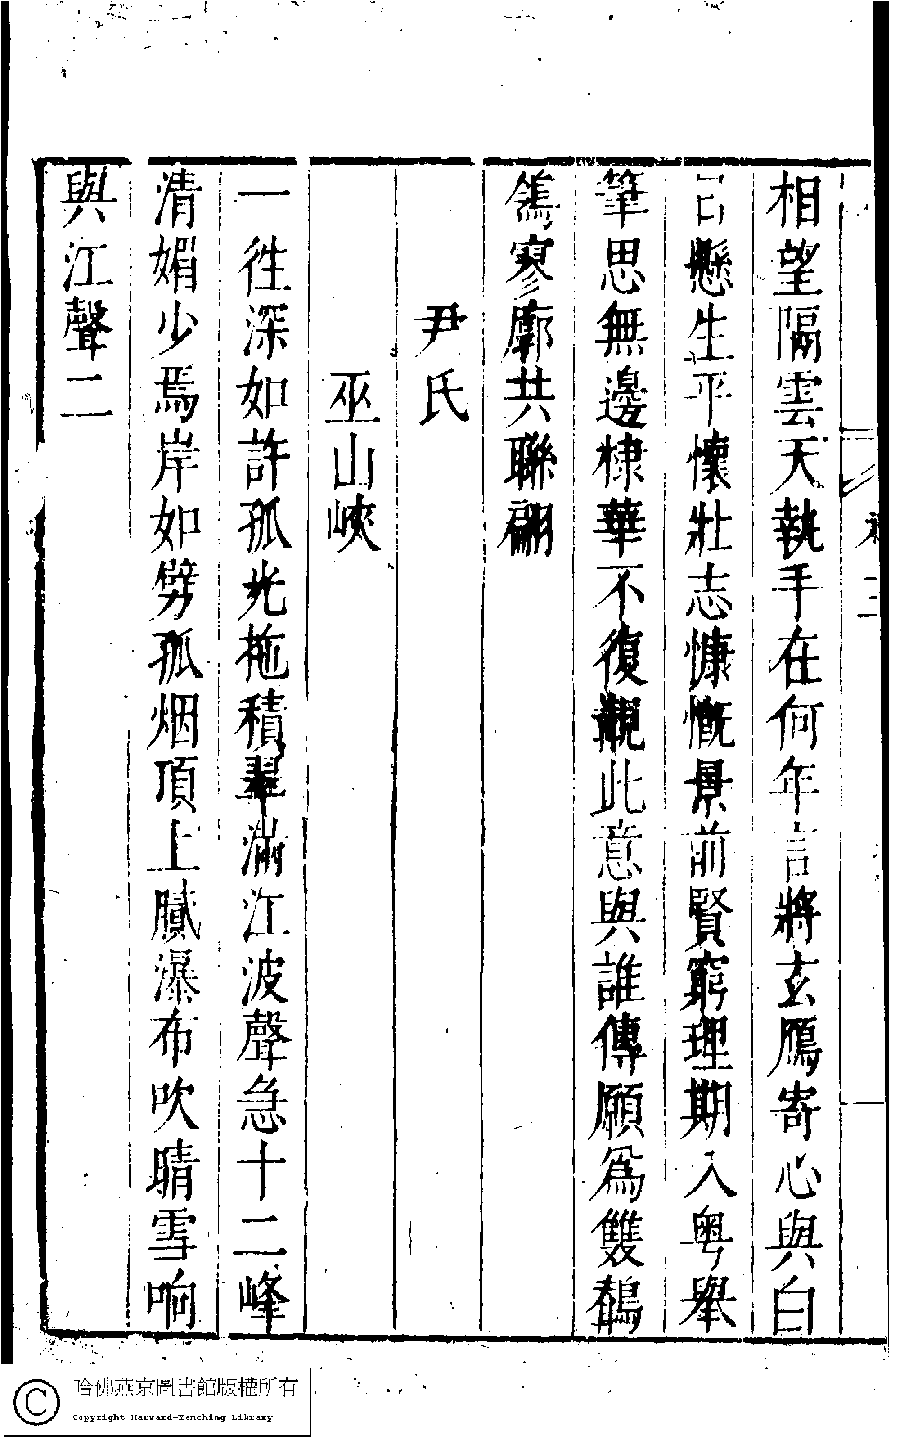 相望隔雲天執手在何年言將玄鴈寄心與白
日懸生平懷壯志慷慨景前賢窮理期入粤舉
筆思無邊棣華不復覩此意與誰傳願爲雙鶺
鴒寥廓共聯翩
尹氏
巫山峽
一徃深如許孤光拖積翠滿江波聲急十二峰
清媚少焉岸如劈孤烟頂上膩瀑布吹晴雪响
與江聲二
哈佛燕京圖書館版權所有
Copyright Harvard-Yenching Library